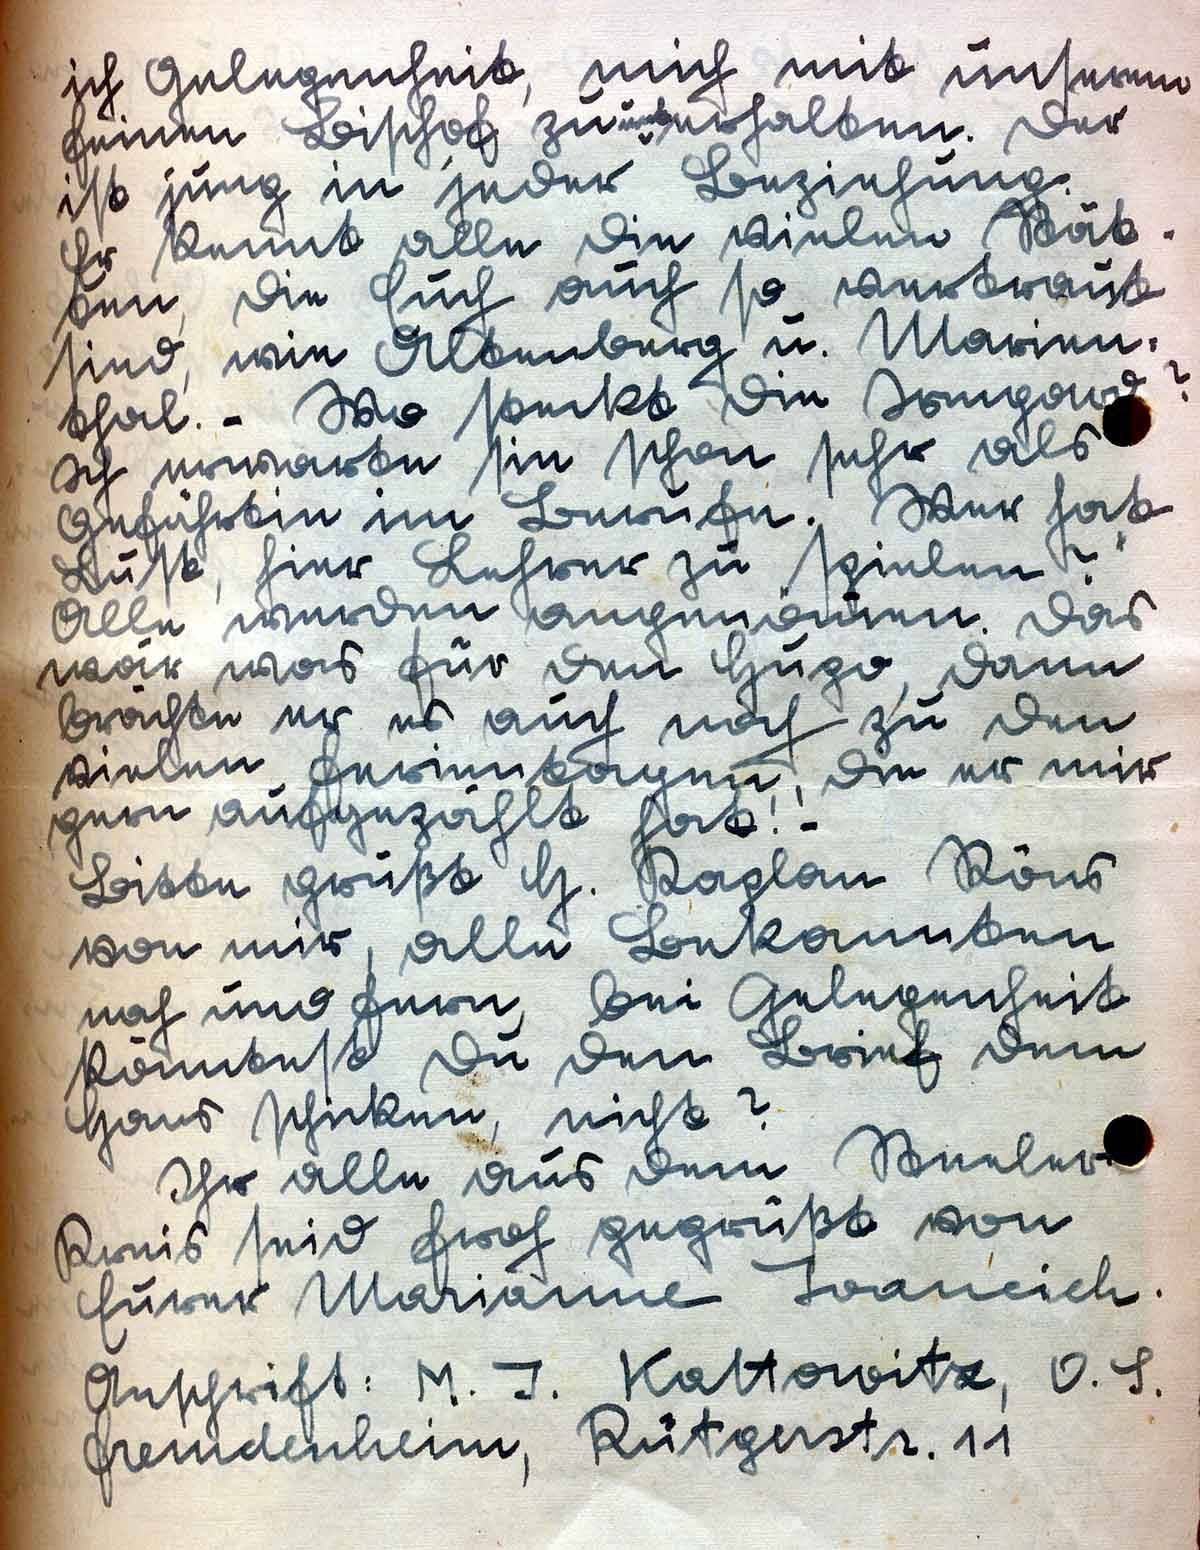 ich Gelegenheit, mich mit unserem
feinen Bischof zu unterhalten. Der
ist jung in jeder Beziehung.
Er kennt alle die vielen Stät-
ten, die Euch auch so vertraut
sind, wie Altenberg u. Marien-
thal. - Wo steckt die Irmgard?
Ich erwarte sie schon sehr als
Gefährtin im Berufe. Wer hat
Lust, hier Lehrer zu spielen?
Alle werden angenom̅en. Das
wär was für den Hugo, dann
brächte er es auch noch zu den
vielen Ferientagen, die er mir
gern aufgezählt hat!! -
Bitte grüßt H. Kaplan Köns
von mir, alle Bekannten
nah und fern, bei Gelegenheit
könntest Du den Brief dem
Hans schicken, nicht?
Ihr alle aus dem Steeler
Kreis seid froh gegrüßt von
Eurer Marianne Ivancich.
Anschrift: M. I. Kattowitz, O. S.
Fremdenheim, Rütgerstr. 11